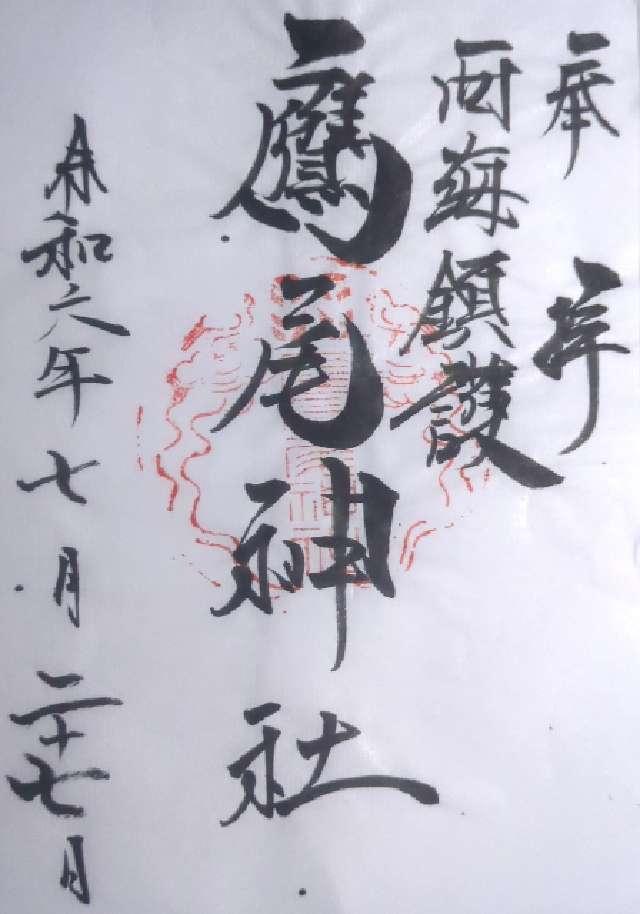 奉拝
西海鎮護
鷹尾神社
令和六年七月二十七日